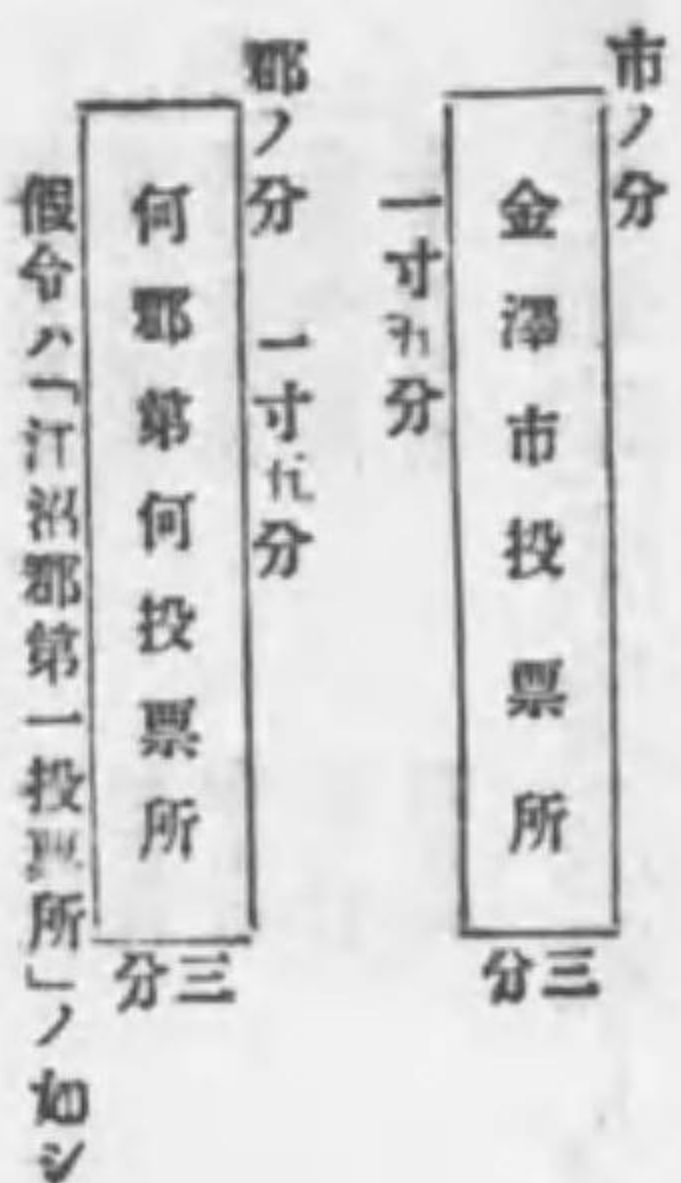 市ノ分
金澤市投票所
一寸五分
三分
郡ノ分
一寸五分
何郡第何投票所
三分
假令ハ「江沼郡第一投票所」ノ如シ